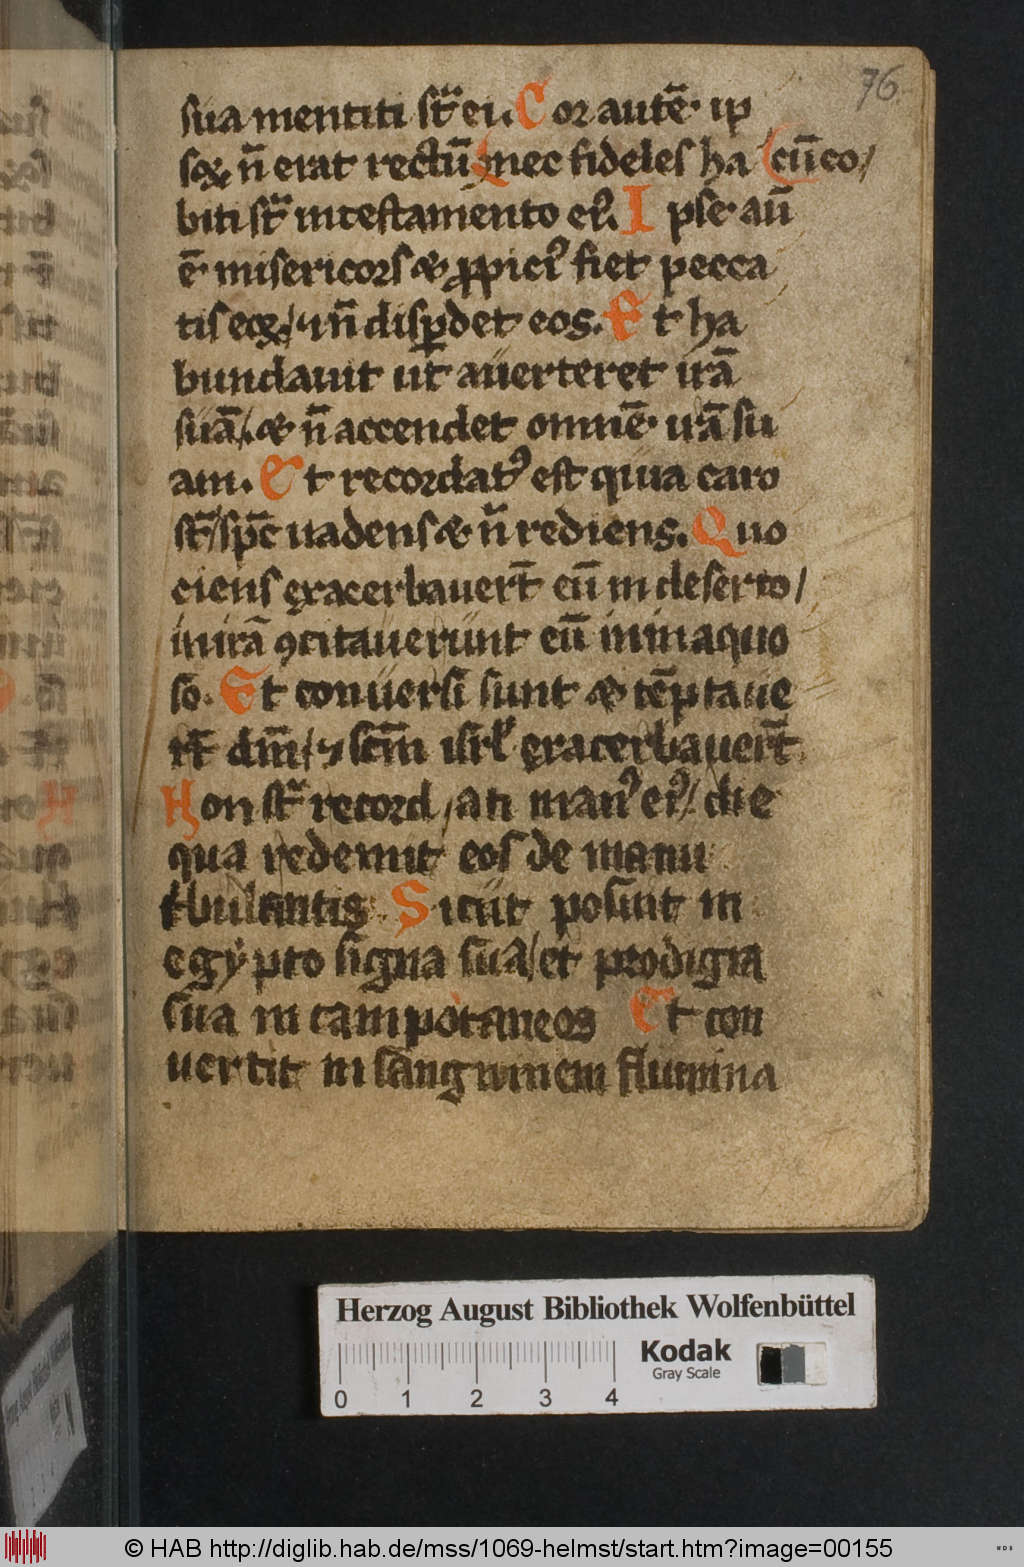 76
sua mentiti st̄ ei. Cor autē ip
soꝝ n̄ erat rectū nec fideles ha
cū eo /
biti st̄ in testamento eiꝰ. Ipse au̅
ē misericors & ꝓpiciꝰ fiet pecca
tis eoꝝ / ⁊ n̄ disꝑdet eos. Et ha
bundauit ut auerteret irā
suā / & n̄ accendet omnē irā su
am. Et recordatꝰ est quia caro
st̄ / spc̄ uadens & n̄ rediens. Quo
ciens exacerbauert̄ eū in deserto /
in irā ꝯcitauerunt eū in inaquo
so. Et conuersi sunt & tēptaue
rt̄ dm̄ / ⁊ scm̄ isrl̓ exacerbauert̄
Non st̄ recordati manꝰ eiꝰ / die
qua redemit eos de manu
t̄bulantis Sicut posuit in
egypto signa sua / et prodigia
sua in campo taneos Et con
uertit in sanguinem flumina
Herzog August Bibliothek Wolfenbüttel
Kodak
Gray Scale
0 1 2 3 4
© HAB http://diglib.hab.de/mss/1069-helmst/start.htm?image=00155